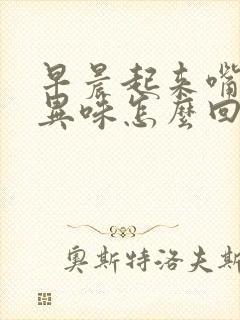 早晨起来嘴
異味怎麼回
奥斯特洛夫斯